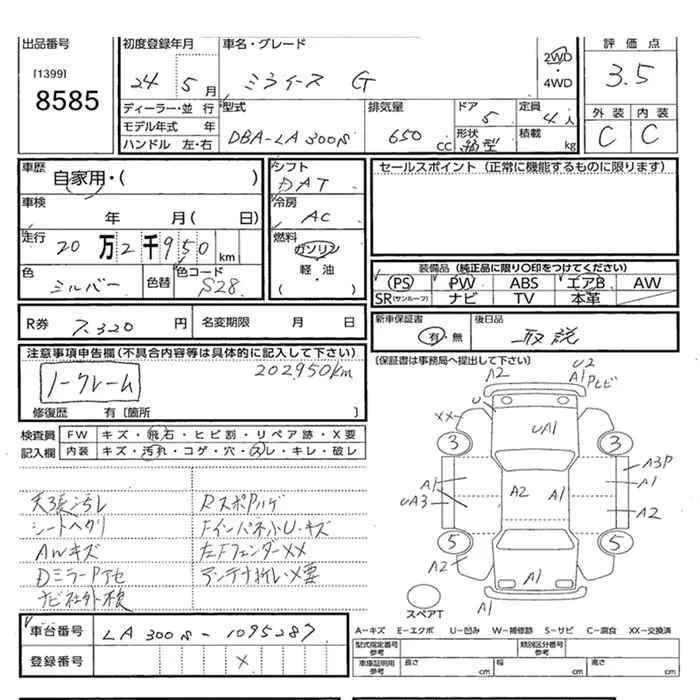 出品番号 初度登録年月 車名・グレード 評価点
[1399]
8585
24 5月 ミライース G 2WD・4WD 3.5
ディーラー・並行 型式 排気量 ドア 5 定員 4人 外装 内装
モデル年式 年 DBA-LA300S 650cc 形状 箱型 積載 kg C C
ハンドル 左・右
車歴 自家用・( ) シフト DAT セールスポイント(正常に機能するものに限ります)
車検 年 月( 日) 冷房 AC
走行 20万2千950km 燃料 ガソリン・軽油・( )
装備品(純正品に限り○印をつけてください)
色 シルバー 色替 色コード S28 PS PW ABS エアB AW
SR(サンルーフ) ナビ TV 本革
R券 7320円 名変期限 月 日 新車保証書 有・無 後日品 取説
注意事項申告欄(不具合内容等は具体的に記入して下さい) (保証書は事務局へ提出して下さい)
202,950km
ノークレーム
修復歴 有[箇所 ]
検査員 FW キズ・飛石・ヒビ割・リペア跡・X要
記入欄 内装 キズ・汚れ・コゲ・穴・スレ・キレ・破レ
天張汚レ
シートヘタリ Fインパネ小U・キズ
AWキズ 左FフェンダーXX
アンテナ折レX要
ナビ社外検
U2
A2 A1
U
XX UA1
3 3
A1 A3P
UA3 A2 A1 A1
A2
5 5
A2
A1
スペアT A1
車台番号 LA300S-1095287
A－キズ E－エクボ U－凹み W－補修跡 S－サビ C－腐食 XX－交換済
登録番号 X 型式指定番号参考 類別区分番号参考
車庫証明用参考 長さ cm 幅 cm 高さ cm